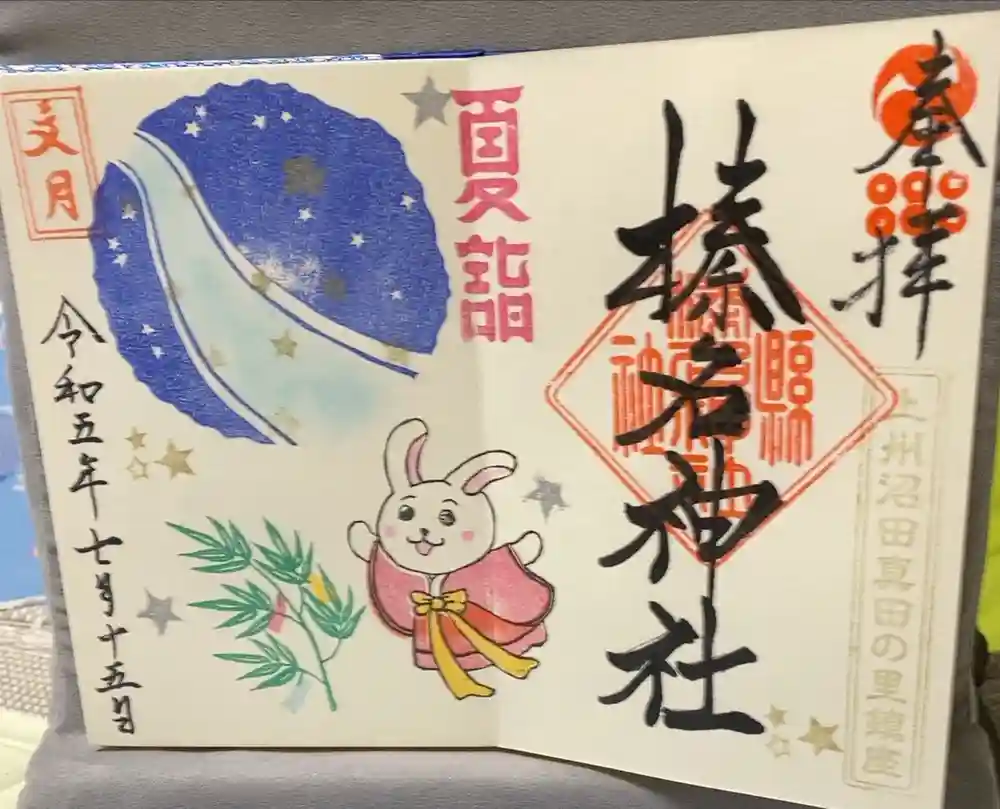 奉拝
上州沼田真田の里鎮座
榛名神社
夏詣
文月
令和五年七月十五日